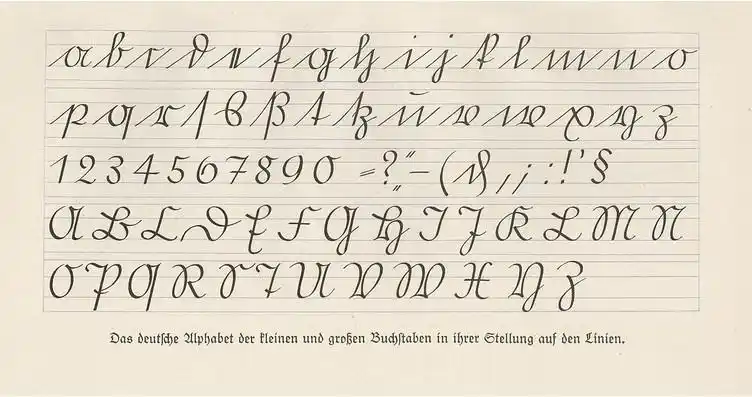 a b c d e f g h i j k l m n o
p q r ſ s ß t tz ŭ v w x y z
1 2 3 4 5 6 7 8 9 0 = ? „ “ – ( & ) , ; : ! ’ §
A B C D E F G H I J K L M N
O P Q R S T U V W X Y Z
Das deutſche Alphabet der kleinen und großen Buchſtaben in ihrer Stellung auf den Linien.